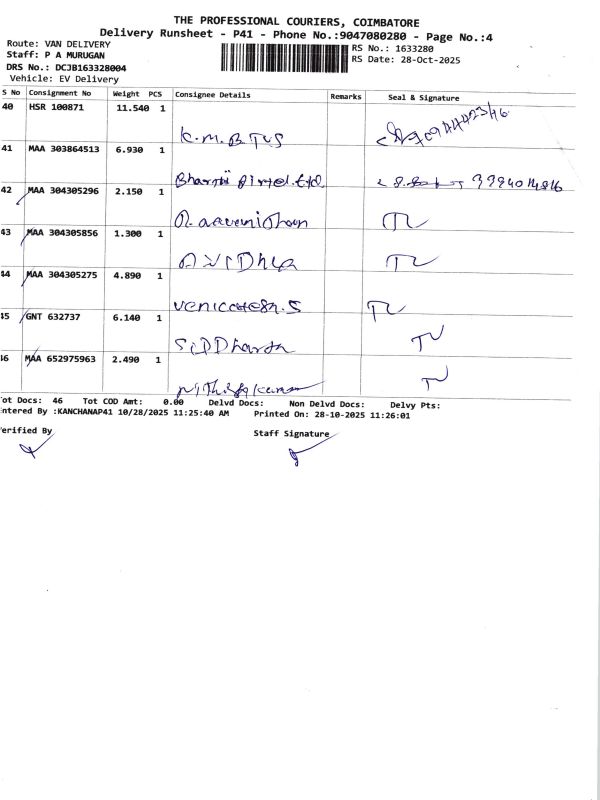 THE PROFESSIONAL COURIERS, COIMBATORE
Delivery Runsheet - P41 - Phone No.:9047080280 - Page No.:4
Route: VAN DELIVERY
RS No.: 1633280
Staff: P A MURUGAN
RS Date: 28-Oct-2025
DRS No.: DCJB163328004
Vehicle: EV Delivery
S No Consignment No Weight PCS Consignee Details Remarks Seal & Signature
40 HSR 100871 11.540 1
K.M.B TVS
41 MAA 303864513 6.930 1
Bharti Airtel.Ltd.
42 MAA 304305296 2.150 1
TL
43 MAA 304305856 1.300 1
TL
44 MAA 304305275 4.890 1
Venkatesh.S TL
45 GNT 632737 6.140 1
SiDDharth TL
46 MAA 652975963 2.490 1
TL
Tot Docs: 46 Tot COD Amt: 0.00 Delvd Docs: Non Delvd Docs: Delvy Pts:
Entered By :KANCHANAP41 10/28/2025 11:25:40 AM Printed On: 28-10-2025 11:26:01
Verified By Staff Signature